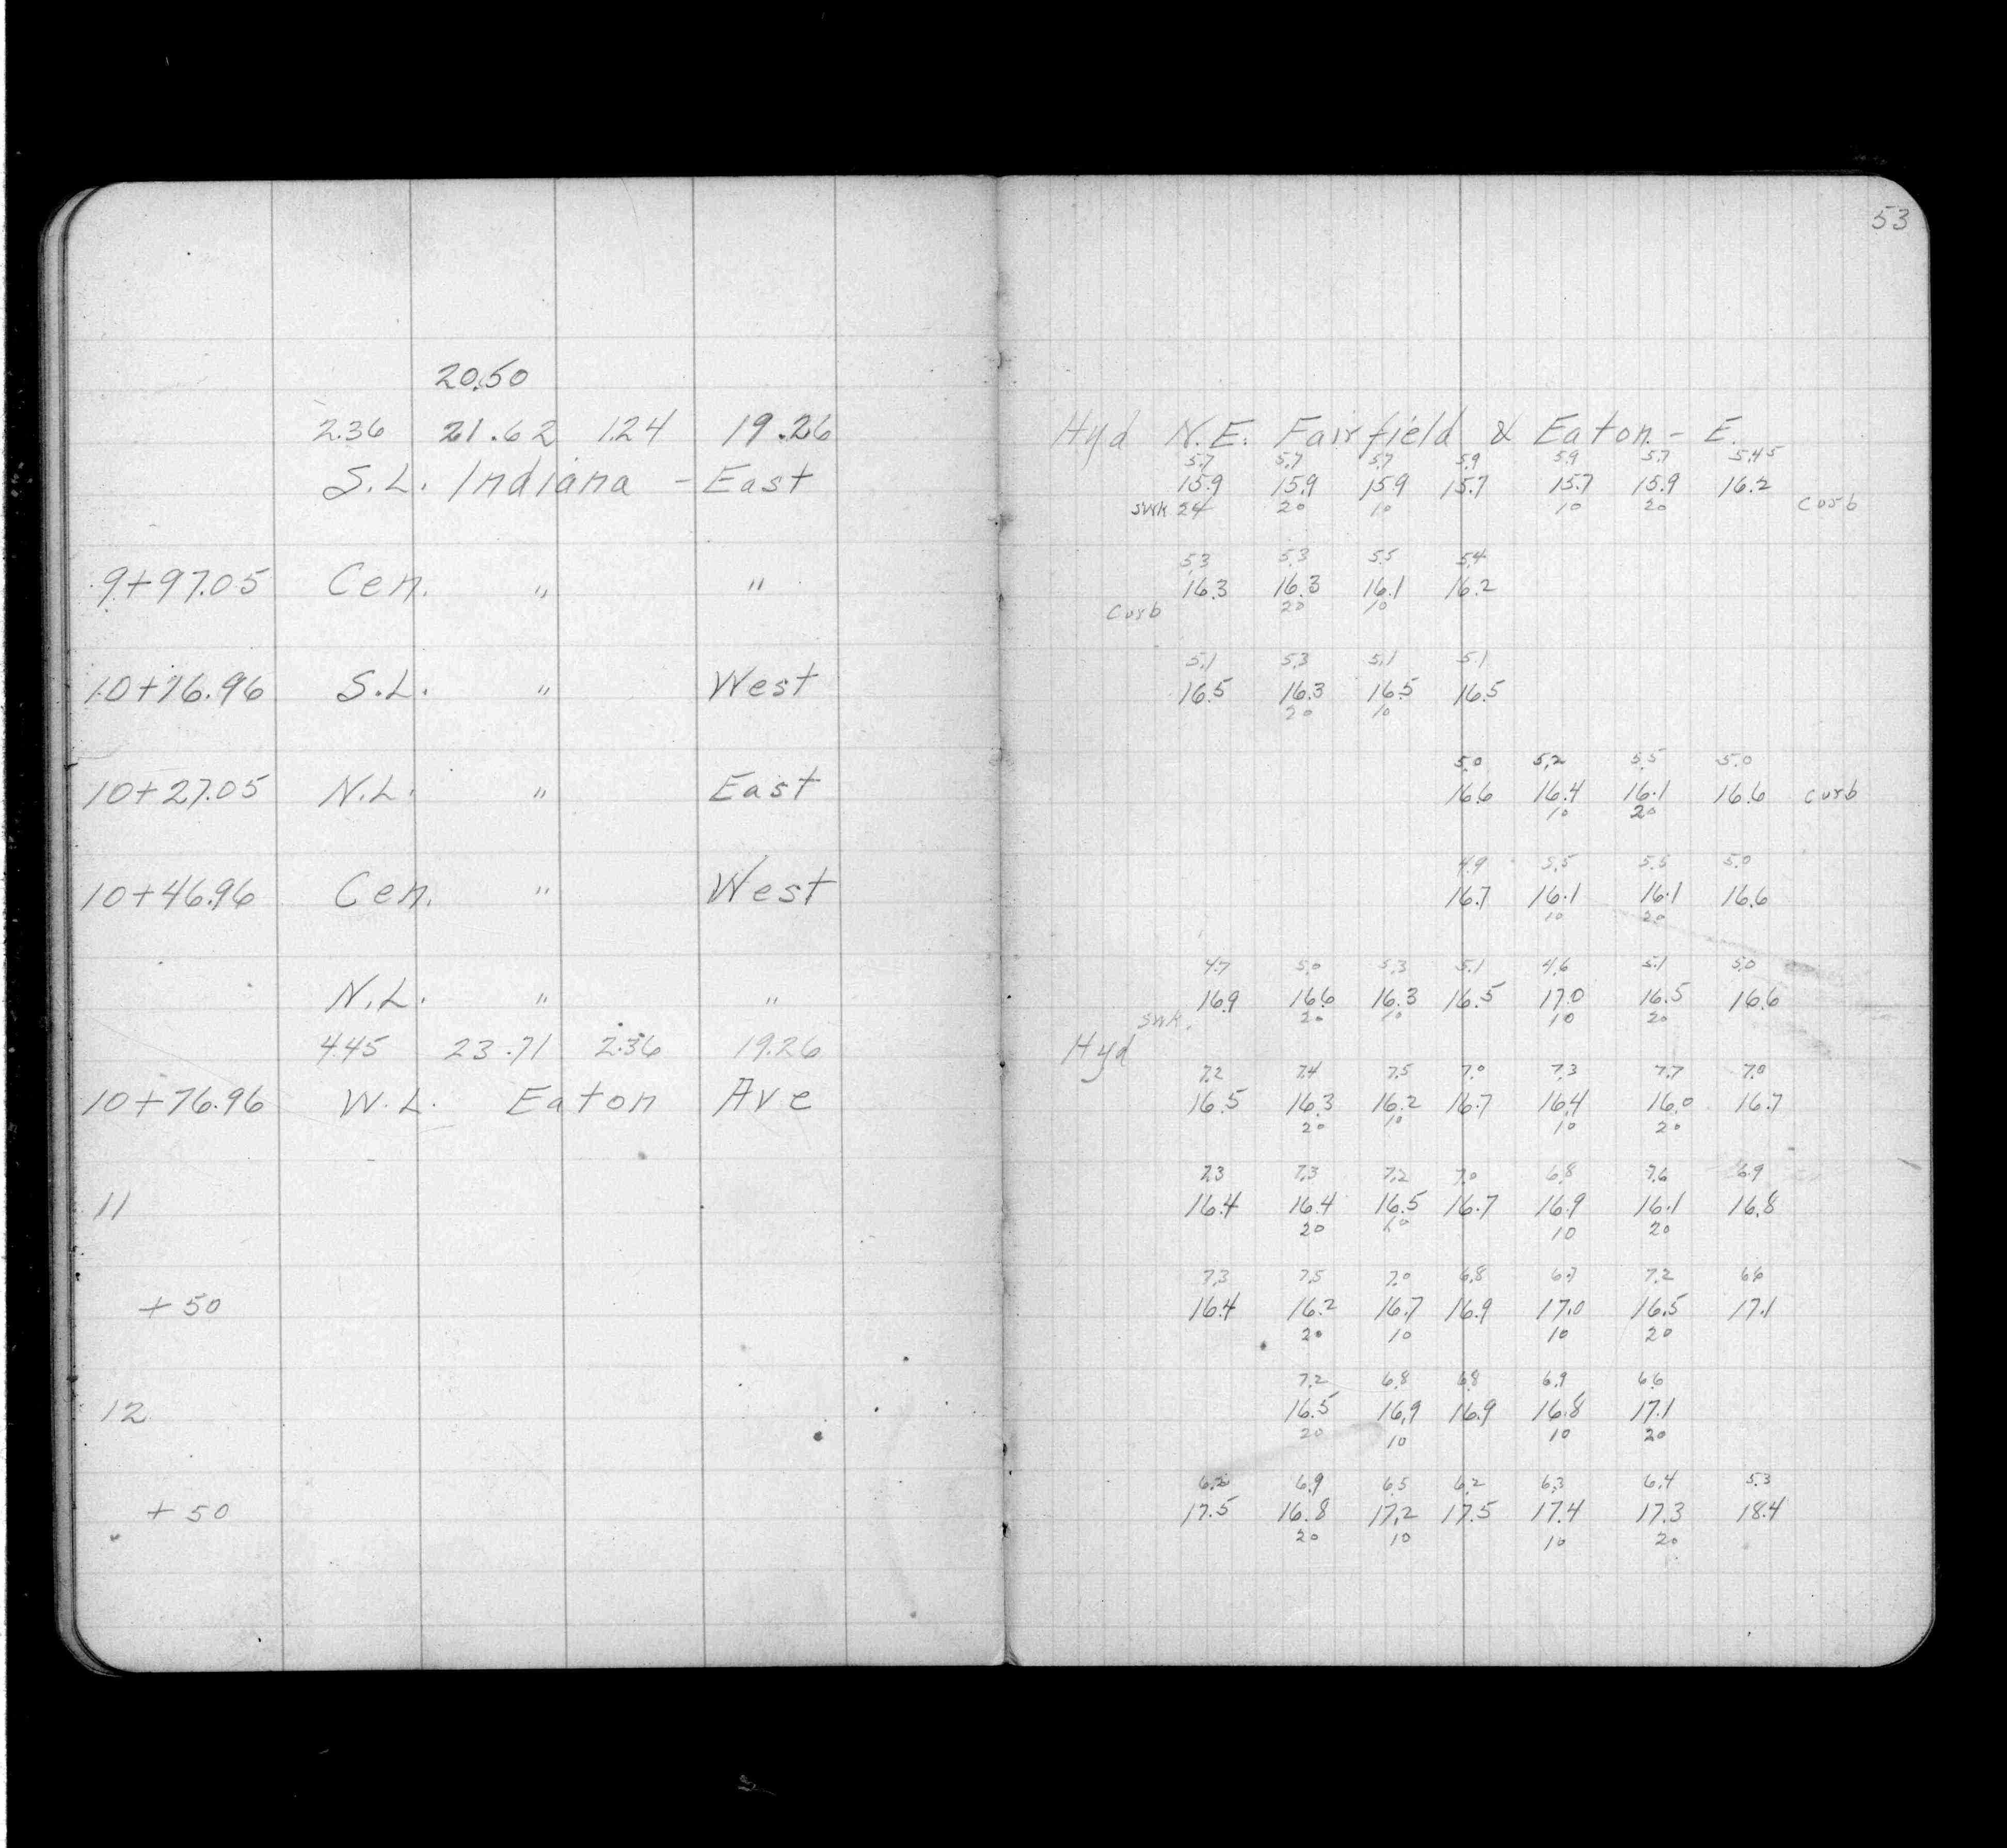 20.50
2.36 21.62 1.24 19.26
S.L. Indiana - East
9+97.05 Cen. " "
10+16.96 S.L. " West
10+27.05 N.L. " East
10+46.96 Cen. " West
N.L. " "
4.45 23.71 2.36 19.26
10+76.96 W.L. Eaton Ave
11
+50
12
+50
53
Hyd N.E. Fairfield & Eaton - E.
5.7 5.7 5.7 5.9 5.9 5.7 5.45
15.9 15.9 15.9 15.7 15.7 15.9 16.2
swk 24 20 10 10 20 curb
5.3 5.3 5.5 5.4
16.3 16.3 16.1 16.2
curb 20 10
5.1 5.3 5.1 5.1
16.5 16.3 16.5 16.5
20 10
5.0 5.2 5.5 5.0
16.6 16.4 16.1 16.6 curb
10 20
4.9 5.5 5.5 5.0
16.7 16.1 16.1 16.6
10 20
4.7 5.0 5.3 5.1 4.6 5.1 5.0
16.9 16.6 16.3 16.5 17.0 16.5 16.6
swk. 20 10 10 20
Hyd
7.2 7.4 7.5 7.0 7.3 7.7 7.0
16.5 16.3 16.2 16.7 16.4 16.0 16.7
20 10 10 20
7.3 7.3 7.2 7.0 6.8 7.6 6.9
16.4 16.4 16.5 16.7 16.9 16.1 16.8
20 10 10 20
7.3 7.5 7.0 6.8 6.7 7.2 6.6
16.4 16.2 16.7 16.9 17.0 16.5 17.1
20 10 10 20
7.2 6.8 6.8 6.9 6.6
16.5 16.9 16.9 16.8 17.1
20 10 10 20
6.2 6.9 6.5 6.2 6.3 6.4 5.3
17.5 16.8 17.2 17.5 17.4 17.3 18.4
20 10 10 20